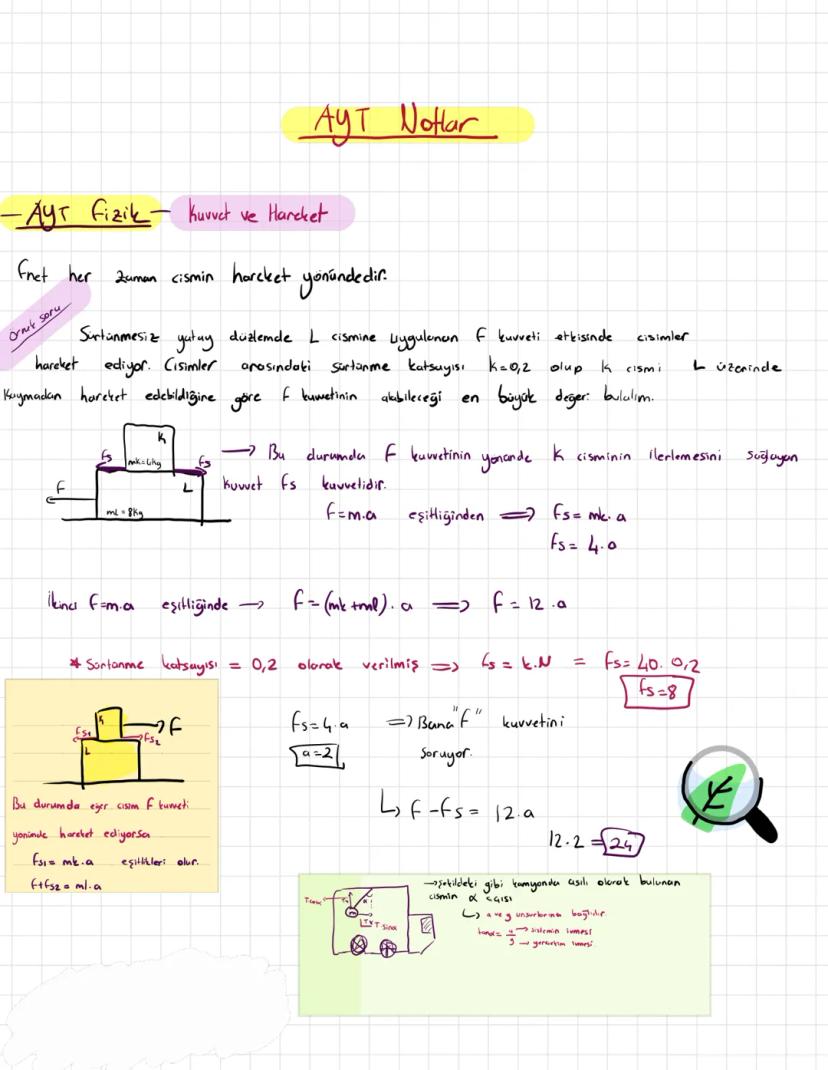 AYT Notlar
- AYT Fizik - Kuvvet ve Hareket
Fnet her zaman cismin hareket yönündedir.
Örnek soru
Sürtünmesiz yatay düzlemde L cismine uygulanan F kuvveti etkisinde cisimler
hareket ediyor. Cisimler arasındaki sürtünme katsayısı k=0,2 olup K cismi L üzerinde
kaymadan hareket edebildiğine göre F kuvvetinin alabileceği en büyük değeri bulalım.
K
fs mk=4kg fs
F L
mL = 8kg
→ Bu durumda F kuvvetinin yönünde K cisminin ilerlemesini sağlayan
kuvvet fs kuvvetidir.
F=m.a eşitliğinden ⇒ fs= mk.a
fs= 4.a
İkinci F=m.a eşitliğinde → F=(mk+ml).a ⇒ F = 12.a
* Sürtünme katsayısı = 0,2 olarak verilmiş ⇒ fs = k.N = fs= 40.0,2
fs=8
fs=4.a ⇒ Bana "F" kuvvetini
a=2 soruyor.
↳ F-fs= 12.a
12.2 = 24
K F
fs1 fs2
L
Bu durumda eğer cisim F kuvveti
yönünde hareket ediyorsa
fs1= mk.a eşitlikleri olur.
F+fs2= ml.a
→ Şekildeki gibi kamyonda asılı olarak bulunan
cismin α açısı
↳ a ve g unsurlarına bağlıdır.
tanα= a/g → sistemin ivmesi
→ yerçekimi ivmesi
Tcosα
α
m
T sinα